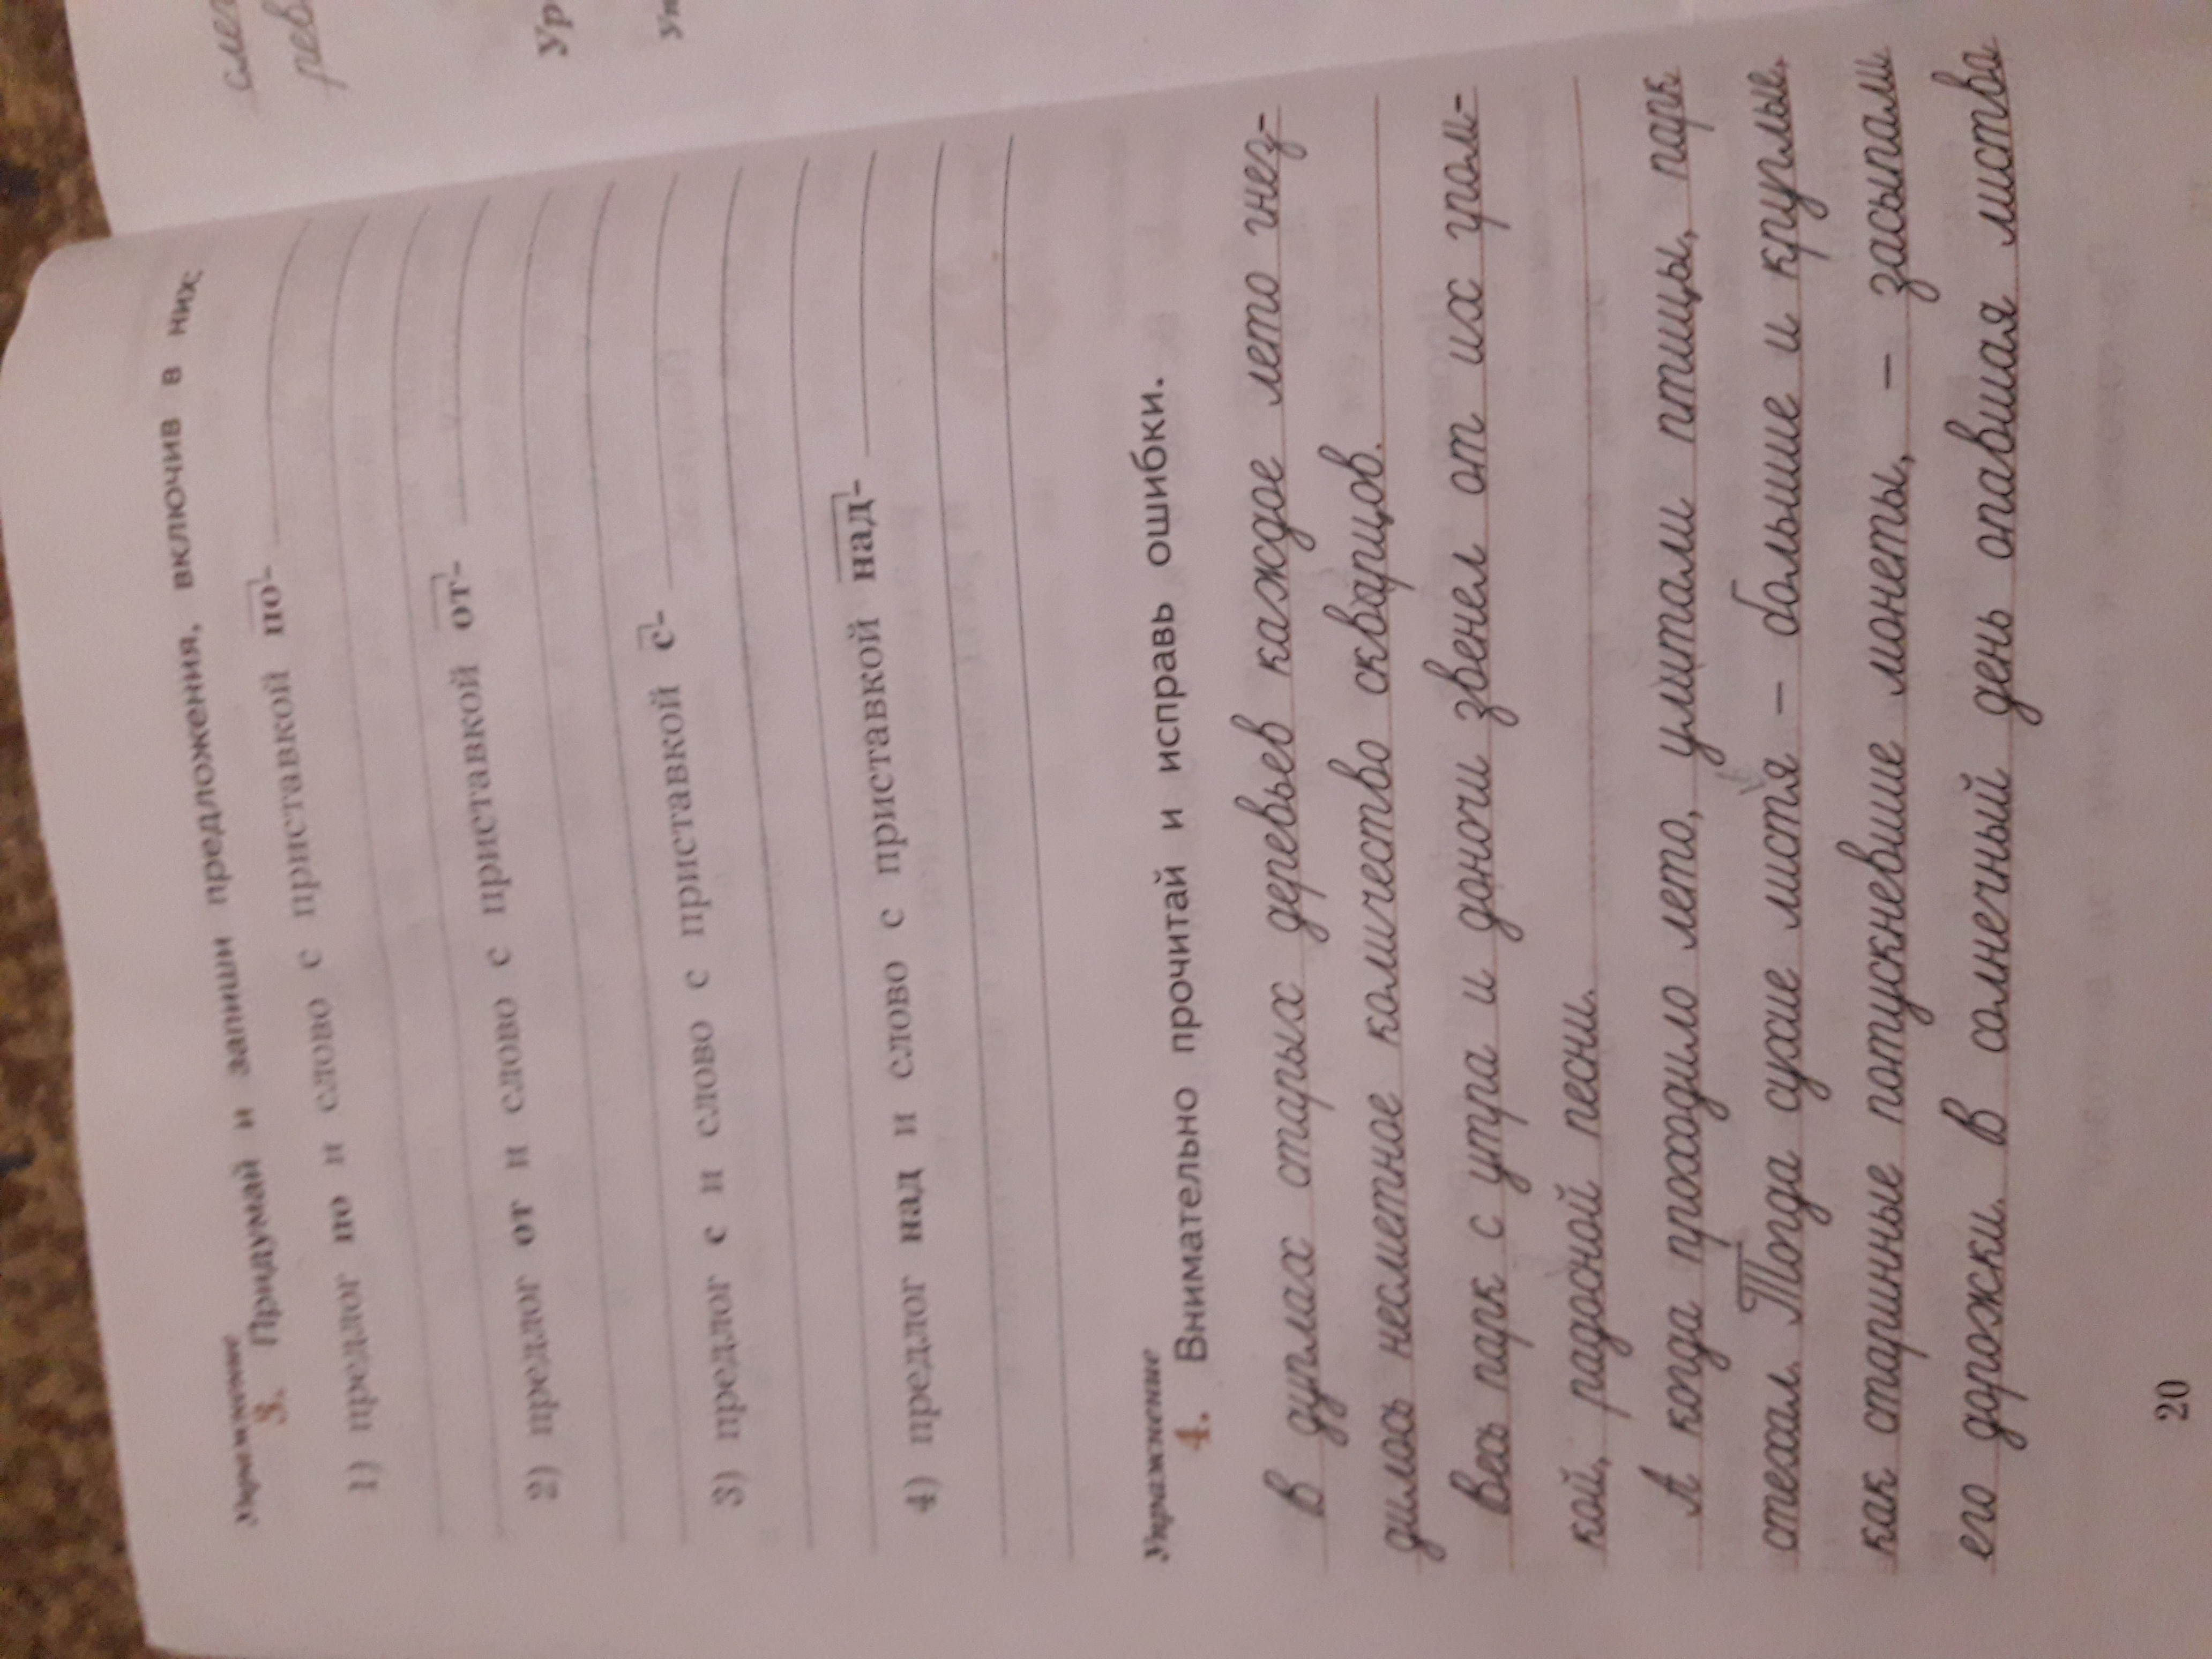 Упражнение
3. Придумай и запиши предложения, включив в них:
1) предлог по и слово с приставкой по-
2) предлог от и слово с приставкой от-
3) предлог с и слово с приставкой с-
4) предлог над и слово с приставкой над-
Упражнение
4. Внимательно прочитай и исправь ошибки.
В дуплах старых деревьев каждое лето гнез-
дилось несметное количество скварцов.
Весь парк с утра и доночи звенел от их гром-
кой, радосной песни.
А когда проходило лето, улитали птицы, парк
стехал. Тогда сухие листя – большие и круглые,
как старинные потускневшие монеты, – засыпали
его дорожки. В солнечный день опавшая листва
20
Ур